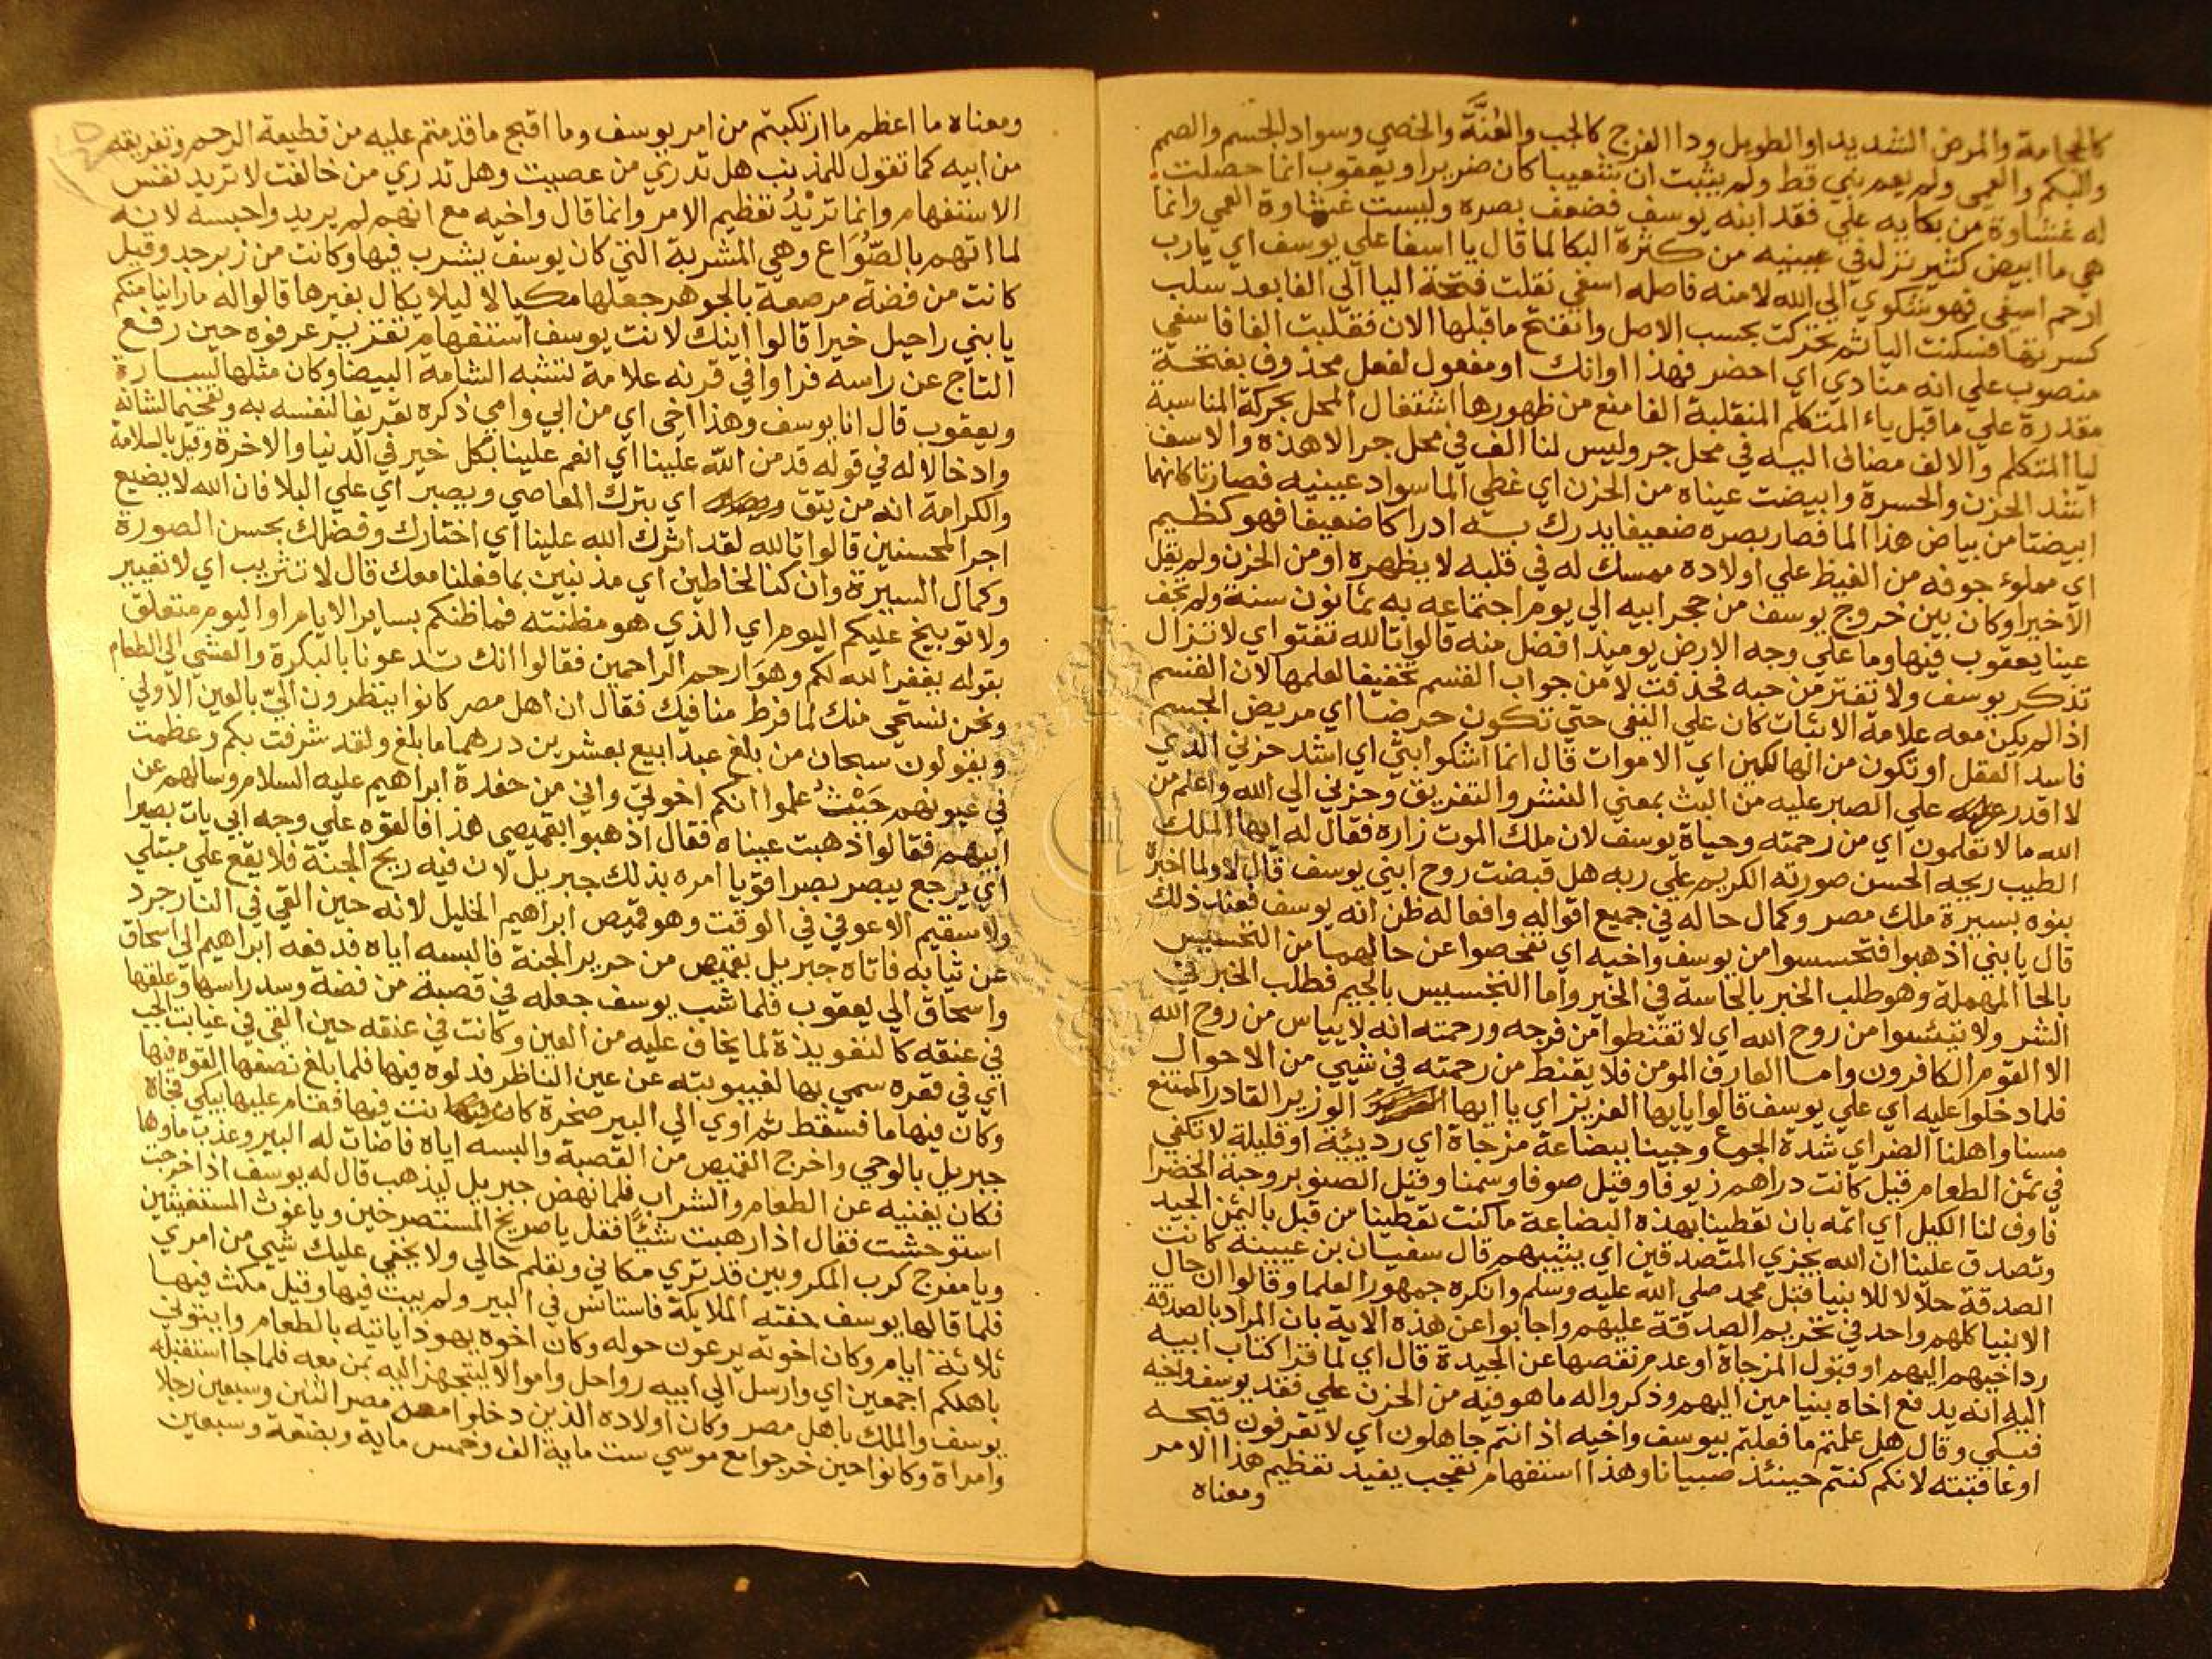 كالحجامة والمرض الشديد او الطويل ودا الفرج كالجب والعُنَّة والخصي وسواد الجسم والصمم
والبكم والعمى ولم يعم نبي قط ولم يثبت ان شعيبا كان ضريرا ويعقوب انما حصلت
له غشاوة من بكايه علي فقد ابنه يوسف فضعف بصره وليست غشاوة العمي وانما
هي ما ابيض كثير نزل في عينيه من كثرة البكا لما قال يا اسفا علي يوسف اي يارب
ارحم اسفي فهو شكوي الي الله لا منه فاصله اسفي نقلت فتحة اليا الي الفا بعد سلب
كسرتها فسكنت اليا ثم تحركت بحسب الاصل وانفتح ما قبلها الان فقلبت الفا فاسفي
منصوب علي انه منادي اي احضر فهذا اوانك او مفعول لفعل محذوف بفتحة
مقدرة علي ما قبل ياء المتكلم المنقلبة الفا منع من ظهورها اشتغال المحل بحركة المناسبة
ليا المتكلم والالف مضاف اليه في محل جر وليس لنا الف في محل جر الا هذه والاسف
اشد الحزن والحسرة وابيضت عيناه من الحزن اي غطي الما سواد عينيه فصارتا كانهما
ابيضتا من بياض هذا الما فصار بصره ضعيفا يدرك به ادراكا ضعيفا فهو كظيم
اي مملوء جوفه من الغيظ علي اولاده ممسك له في قلبه لا يظهره او من الحزن ولم يقل
الا خيرا وكان بين خروج يوسف من حجر ابيه الي يوم اجتماعه به ثمانون سنة ولم تجف
عينا يعقوب فيها وما علي وجه الارض يوميذ افضل منه قالوا تالله تفتو اي لا تزال
تذكر يوسف ولا تفتر من حبه فحذفت لا من جواب القسم تخفيفا لعلمها لان القسم
اذا لم يكن معه علامة الاثبات كان علي النفي حتي تكون حرضا اي مريض الجسم
فاسد العقل او تكون من الهالكين اي الاموات قال انما اشكوا بثي اي اشد حزني الذي
لا اقدر علي الصبر عليه من البث بمعني النشر والتفريق وحزني الي الله واعلم من
الله ما لا تعلمون اي من رحمته وحياة يوسف لان ملك الموت زاره فقال له ايها الملك
الطيب ريحه الحسن صورته الكريم علي ربه هل قبضت روح ابني يوسف قال لا ولما اخبره
بنوه بسيرة ملك مصر وكمال حاله في جميع اقواله وافعاله ظن انه يوسف فعند ذلك
قال يا بني اذهبوا فتحسسوا من يوسف واخيه اي تفحصوا عن حالهما من التحسيس
بالحا المهملة وهو طلب الخبر بالحاسة في الخير واما التجسيس بالجيم فطلب الخبر في
الشر ولا تيئسوا من روح الله اي لا تقنطوا من فرجه ورحمته انه لا ييأس من روح الله
الا القوم الكافرون واما العارف المومن فلا يقنط من رحمته في شيي من الاحوال
فلما دخلوا عليه اي علي يوسف قالوا يا يها العزيز اي يا ايها الوزير القادر الممتنع
مسنا واهلنا الضر اي شدة الجوع وجينا ببضاعة مزجاة اي رديئة او قليلة لا تكفي
في ثمن الطعام قيل كانت دراهم زيوفا وقيل صوفا وسمنا وقيل الصنوبر وحبة الخضرا
فاوف لنا الكيل اي اتمه بان تعطينا بهذه البضاعة ما كنت تعطينا من قبل بالثمن الجيد
وتصدق علينا ان الله يجزي المتصدقين اي يثيبهم قال سفيان بن عيينة كانت
الصدقة حلالا للانبيا قبل محمد صلي الله عليه وسلم وانكره جمهور العلما وقالوا ان حال
الانبيا كلهم واحد في تحريم الصدقة عليهم واجابوا عن هذه الاية بان المراد بالصدقة
رد اخيهم اليهم او قبول المزجاة او عدم نقصها عن الجيدة قال اي لما قرا كتاب ابيه
اليه انه يدفع اخاه بنيامين اليهم وذكروا له ما هو فيه من الحزن علي فقد يوسف واخيه
فبكي وقال هل علمتم ما فعلتم بيوسف واخيه اذ انتم جاهلون اي لا تعرفون قبحه
او عاقبته لانكم كنتم حينئذ صبيانا وهذا استفهام تعجب يفيد تعظيم هذا الامر
ومعناه
ومعناه ما اعظم ما ارتكبتم من امر يوسف وما اقبح ما قدمتم عليه من قطيعة الرحم وتفريقه
من ابيه كما تقول للمذنب هل تدري من عصيت وهل تدري من خالفت لا تريد نفس
الاستفهام وانما تريْدُ تعظيم الامر وانما قال واخيه مع انهم لم يريد واحبسه لانه
لما اتهم بالصُّوَاع وهي المشربة التي كان يوسف يشرب فيها وكانت من زبرجد وقيل
كانت من فضة مرصعة بالجوهر جعلها مكيالا ليلا يكال بغيرها قالوا له ما راينا منكم
يا بني راحيل خيرا قالوا اينك لانت يوسف استفهام تقرير عرفوه حين رفع
التاج عن راسه فراوا في قرنه علامة تشبه الشامة البيضا وكان مثلها لسارة
ويعقوب قال انا يوسف وهذا اخي اي من ابي وامي ذكره تعريفا لنفسه به وتفخيما لشانه
وادخالا له في قوله قد من الله علينا اي انعم علينا بكل خير في الدنيا والاخرة وقيل بالسلامة
والكرامة انه من يتق اي يترك المعاصي ويصبر اي علي البلا فان الله لا يضيع
اجر المحسنين قالوا تالله لقد اثرك الله علينا اي اختارك وفضلك بحسن الصورة
وكمال السيرة وان كنا لخاطين اي مذنبين بما فعلنا معك قال لا تثريب اي لا تعيير
ولا توبيخ عليكم اليوم اي الذي هو مظنته فما ظنكم بساير الايام او اليوم متعلق
بقوله يغفر الله لكم وهو ارحم الراحمين فقالوا انك تدعونا بالبكرة والعشي الي الطعام
ونحن نستحي منك لما فرط منا فيك فقال ان اهل مصر كانوا ينظرون اليّ بالعين الاولي
ويقولون سبحان من بلغ عبدا بيع بعشرين درهما ما بلغ ولقد شرفت بكم وعظمت
في عيونهم حَيْثُ علموا انكم اخوتي واني من حفدة ابراهيم عليه السلام وسالهم عن
ابيهم فقالوا ذهبت عيناه فقال اذهبوا بقميصي هذا فالقوه علي وجه ابي يات بصيرا
اي يرجع يبصر بصرا قويا امره بذلك جبريل لان فيه ريح الجنة فلا يقع علي مبتلي
ولا سقيم الا عوفي في الوقت وهو قميص ابراهيم الخليل لانه حين القي في النار جرد
عن ثيابه فاتاه جبريل بقميص من حرير الجنة فالبسه اياه فدفعه ابراهيم الي اسحاق
واسحاق الي يعقوب فلما شب يوسف جعله في قصبة من فضة وسد راسها وعلقها
في عنقه كالتعويذة لما يخاف عليه من العين وكانت في عنقه حين القي في غيابت الجب
اي في قعره سمي بها لغيبوبته عن عين الناظر فدلوه فيها فلما بلغ نصفها القوه فيها
وكان فيها ما فسقط ثم اوي الي البير صخرة كانت فيها فقام عليها يبكي فجاه
جبريل بالوحي واخرج القميص من القصبة والبسه اياه فاضات له البير وعذب ماوها
فكان يغنيه عن الطعام والشراب فلما نهض جبريل ليذهب قال له يوسف اذا خرجت
استوحشت فقال اذا رهبت شيئًا فقل يا صريخ المستصرخين ويا غوث المستغيثين
ويا مفرج كرب المكروبين قد تري مكاني وتعلم حالي ولا يخفي عليك شيي من امري
فلما قالها يوسف حفته الملايكة فاستانس في البير ولم يبت فيها وقيل مكث فيها
ثلاثة ايام وكان اخوته يرعون حوله وكان اخوه يهوذا ياتيه بالطعام وايتوني
باهلكم اجمعين اي وارسل الي ابيه رواحل واموالا ليتجهز اليه بمن معه فلما جا استقبله
يوسف والملك باهل مصر وكان اولاده الذين دخلوا معه مصر اثنين وسبعين رجلا
وامراة وكانوا حين خرجوا مع موسي ست ماية الف وخمس ماية وبضعة وسبعين